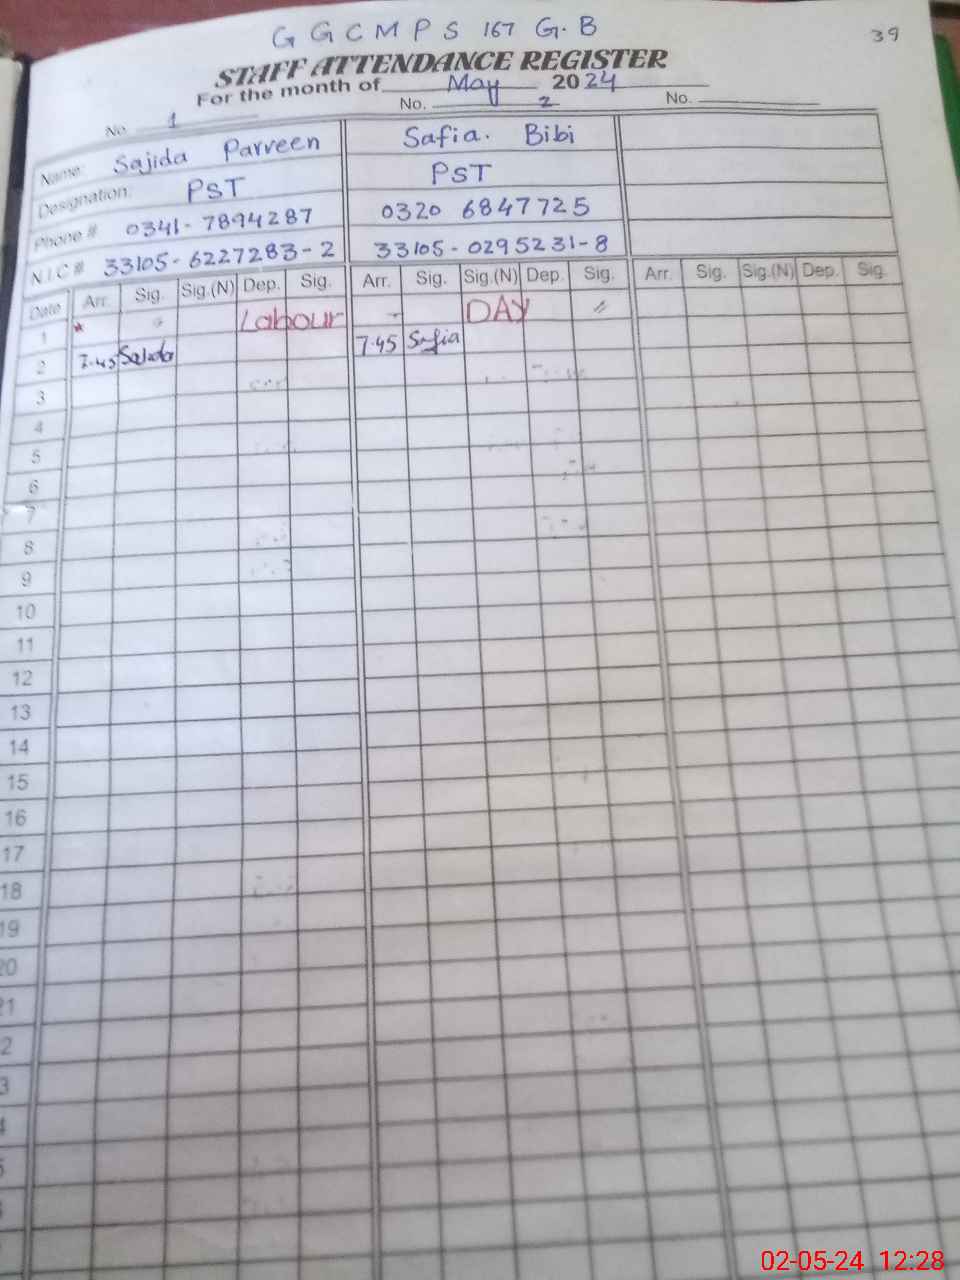 G G C M P S 167 G.B
39
STAFF ATTENDANCE REGISTER
For the month of May 2024
No. 1 No. 2 No.
Name: Sajida Parveen Safia. Bibi
Designation: PST PST
Phone # 0341-7894287 0320 6847725
N.I.C # 33105-6227283-2 33105-0295231-8
Date Arr. Sig. Sig.(N) Dep. Sig. Arr. Sig. Sig.(N) Dep. Sig. Arr. Sig. Sig.(N) Dep. Sig.
1 Labour DAY
2 7.45 Sajida 7.45 Safia
3
4
5
6
7
8
9
10
11
12
13
14
15
16
17
18
19
20
21
2
3
4
5
02-05-24 12:28